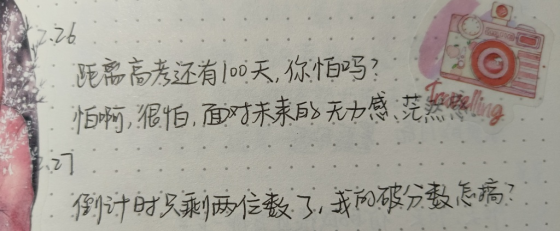 2.26
距离高考还有100天,你怕吗?
怕啊,很怕,面对未来的无力感、茫然感
Travelling
.27
倒计时只剩两位数了,我的破分数怎搞?